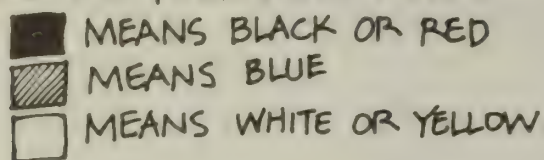 MEANS BLACK OR RED
MEANS BLUE
MEANS WHITE OR YELLOW